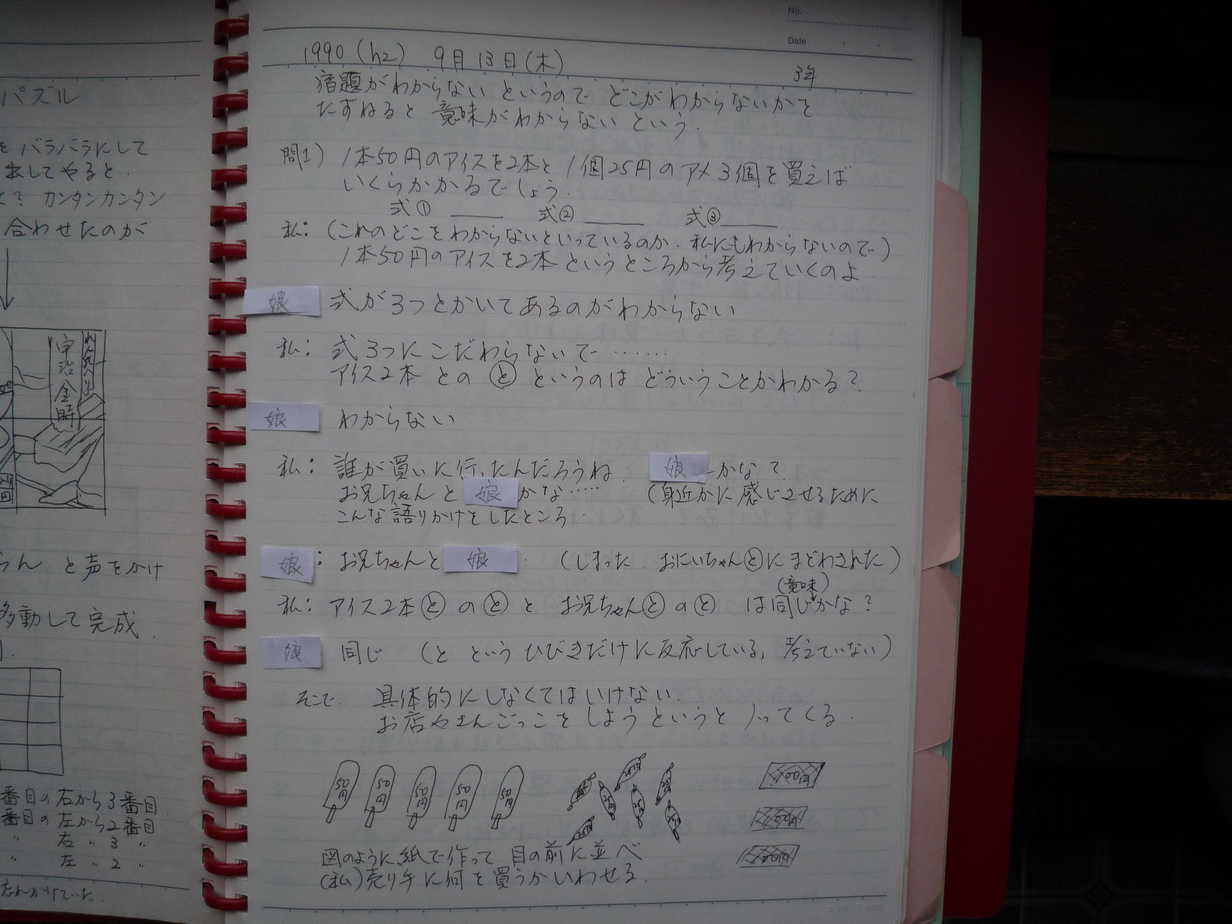 パズル
を バラバラにして
出してやると‥
カンタンカンタン
合わせたのが
宇治金時
と声をかけ
多動して完成.
番目の右から3番目
番目の左から2番目
〃 右 〃 3 〃
〃 左 〃 2 〃
No.
Date
1990 (h2) 9月13日(木)
3年
宿題がわからない というので どこがわからないかを
たずねると 意味がわからない という.
問1) 1本50円のアイスを2本と 1個25円のアメ3個を買えば
いくらかかるでしょう.
式① 式② 式③
私: (これのどこをわからないといっているのか. 私にもわからないので)
1本50円のアイスを2本 というところから考えていくのよ
娘 式が3つとかいてあるのがわからない
私: 式3つにこだわらないで……
アイス2本 との と というのは どういうことがわかる?
娘 わからない
私: 誰が買いに行ったんだろうね. 娘 かな?
お兄ちゃんと 娘 かな…… (身近かに感じさせるために
こんな語りかけをしたところ‥
娘: お兄ちゃんと 娘 (しまった おにいちゃんとにまどわされた)
(意味)
私: アイス2本と のと と お兄ちゃんと のと は同じかな?
娘 同じ (と という ひびきだけに反応している, 考えていない)
そこで 具体的にしなくてはいけない.
お店やさんごっこをしようというと ノってくる.
50円 50円 50円 50円 50円
100円
図のように紙で作って 目の前に並べ
(私)売り手に何を買うかいわせる.